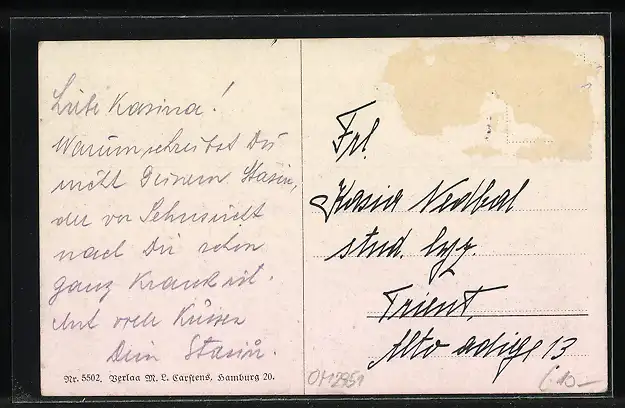 Liebe Kasina!
Warum schreibst Du
nicht Deinem Stasin,
der vor Sehnsucht
nach Dir schon
ganz krank ist.
Mit viele Küssen
Dein Stasin.
Nr. 5502, Verlag M. L. Carstens, Hamburg 20.
Frl.
Kasia Nedbal
stud. lyz.
Trient,
Alto adige 13